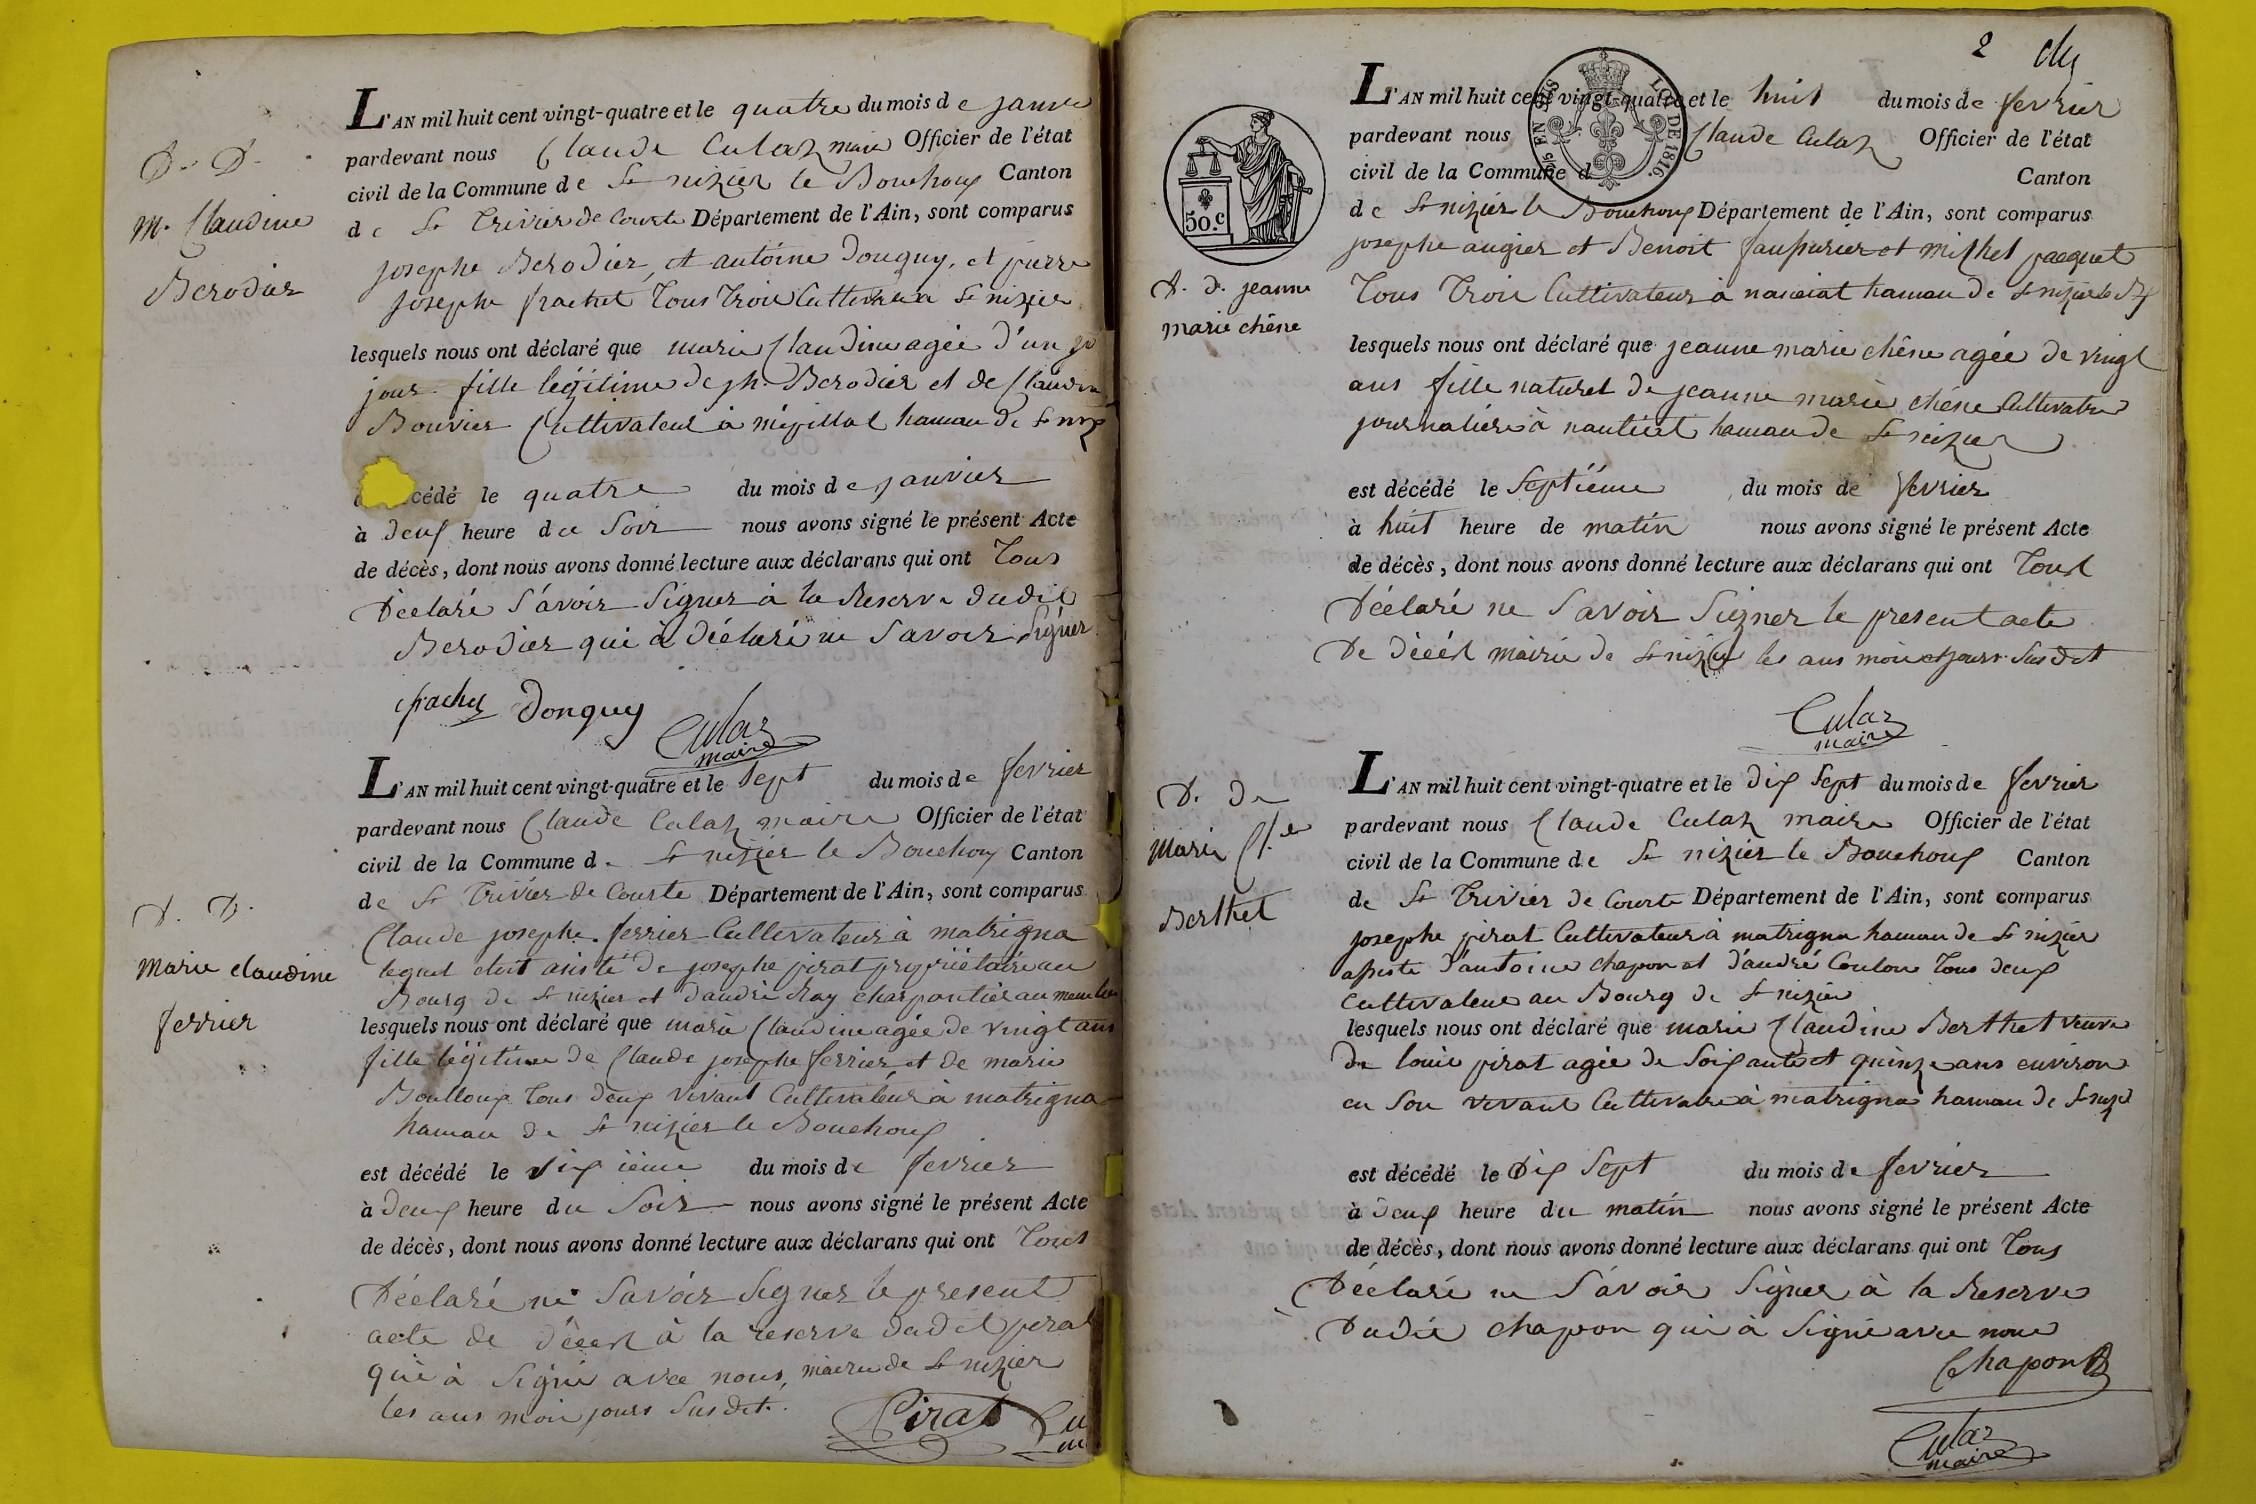 D. D.
M. Claudine
Berodier
L'AN mil huit cent vingt-quatre et le quatre du mois de janvie
pardevant nous Claude Culaz maire Officier de l'état
civil de la Commune de St nizier le Bouchoux Canton
de St Trivier de Courte Département de l'Ain, sont comparus
josephe Berodier, et antoine Donguy, et pierre
josephe frachet Tous Trois Cultivateur a St nizier
lesquels nous ont déclaré que marie Claudine agée d'un
jour fille légitime de jh. Berodier et de Claudine
Bouvier Cultivateur à mépillat hamau de St niz
cédé le quatre du mois de janvier
à deux heure du Soir nous avons signé le présent Acte
de décès, dont nous avons donné lecture aux déclarans qui ont Tous
Déclaré Savoir Signer à la Reserve dudit
Berodier qui à déclaré ne Savoir Signer
frachet Donguy
Culaz
maire
D. D.
Marie claudine
ferrier
L'AN mil huit cent vingt-quatre et le Sept du mois de fevrier
pardevant nous Claude Culaz maire Officier de l'état
civil de la Commune de St nizier le Bouchoux Canton
de St Trivier de Courte Département de l'Ain, sont comparus
Claude josephe ferrier Cultivateur à matrigna
lequel etoit asisté de josephe pirat propriétaire au
Bourg de St nizier et d'andré Ray charpantier au meme lieu
lesquels nous ont déclaré que marie Claudine agée de vingt ans
fille légitime de Claude josephe ferrier et de marie
Boulloux Tous deux vivant Cultivateur à matrigna
hamau de St nizier le Bouchoux
est décédé le Sixième du mois de fevrier
à deux heure du Soir nous avons signé le présent Acte
de décès, dont nous avons donné lecture aux déclarans qui ont Tous
Déclaré ne Savoir Signer le present
acte de décest à la reserve dudit pirat
qui à Signé avec nous, mairie de St nizier
les ans moi jours Susdit.
Pirat Cu
m
2
L'AN mil huit cent vingt-quatre et le huit du mois de fevrier
pardevant nous Claude Culaz Officier de l'état
civil de la Commune d Canton
de St nizier le Bouchoux Département de l'Ain, sont comparus
50.c
LOI DE 1816.
josephe augier et Benoit faussurier et michel pacquet
D. D. jeanne
marie chêne
Tous Trois Cultivateur à nanciat hamau de St nizier le
lesquels nous ont déclaré que jeanne marie chêne agée de vingt
ans fille naturel de jeanne marie chêne Cultivatre
journalière à hamau de St nizier
est décédé le Septième du mois de fevrier
à huit heure de matin nous avons signé le présent Acte
de décès, dont nous avons donné lecture aux déclarans qui ont Toust
Déclaré ne Savoir Signer le present acte
De décést mairie de St nizier les ans moi et jours Susdit
Culaz
maire
D. De
Marie Cl.de
Berthet
L'AN mil huit cent vingt-quatre et le dix Sept du mois de fevrier
pardevant nous Claude Culaz maire Officier de l'état
civil de la Commune de St nizier le Bouchoux Canton
de St Trivier de Courte Département de l'Ain, sont comparus
josephe pirat Cultivateur à matrigna hamau de St nizier
assiste d'antoine chapon et d'andré Coulon Tous deux
Cultivateur au Bourg de St nizier
lesquels nous ont déclaré que marie Claudine Berthet veuve
de louis pirat agée de Soixante et quinze ans environ
en Son vivant Cultivatre à matrigna hamau de St nizie
est décédé le Dix Sept du mois de fevrier
à deux heure du matin nous avons signé le présent Acte
de décès, dont nous avons donné lecture aux déclarans qui ont Tous
Déclaré ne Savoir Signer à la Reserve
Dudit chapon qui à Signé avec nous
Chapon
Culaz
maire